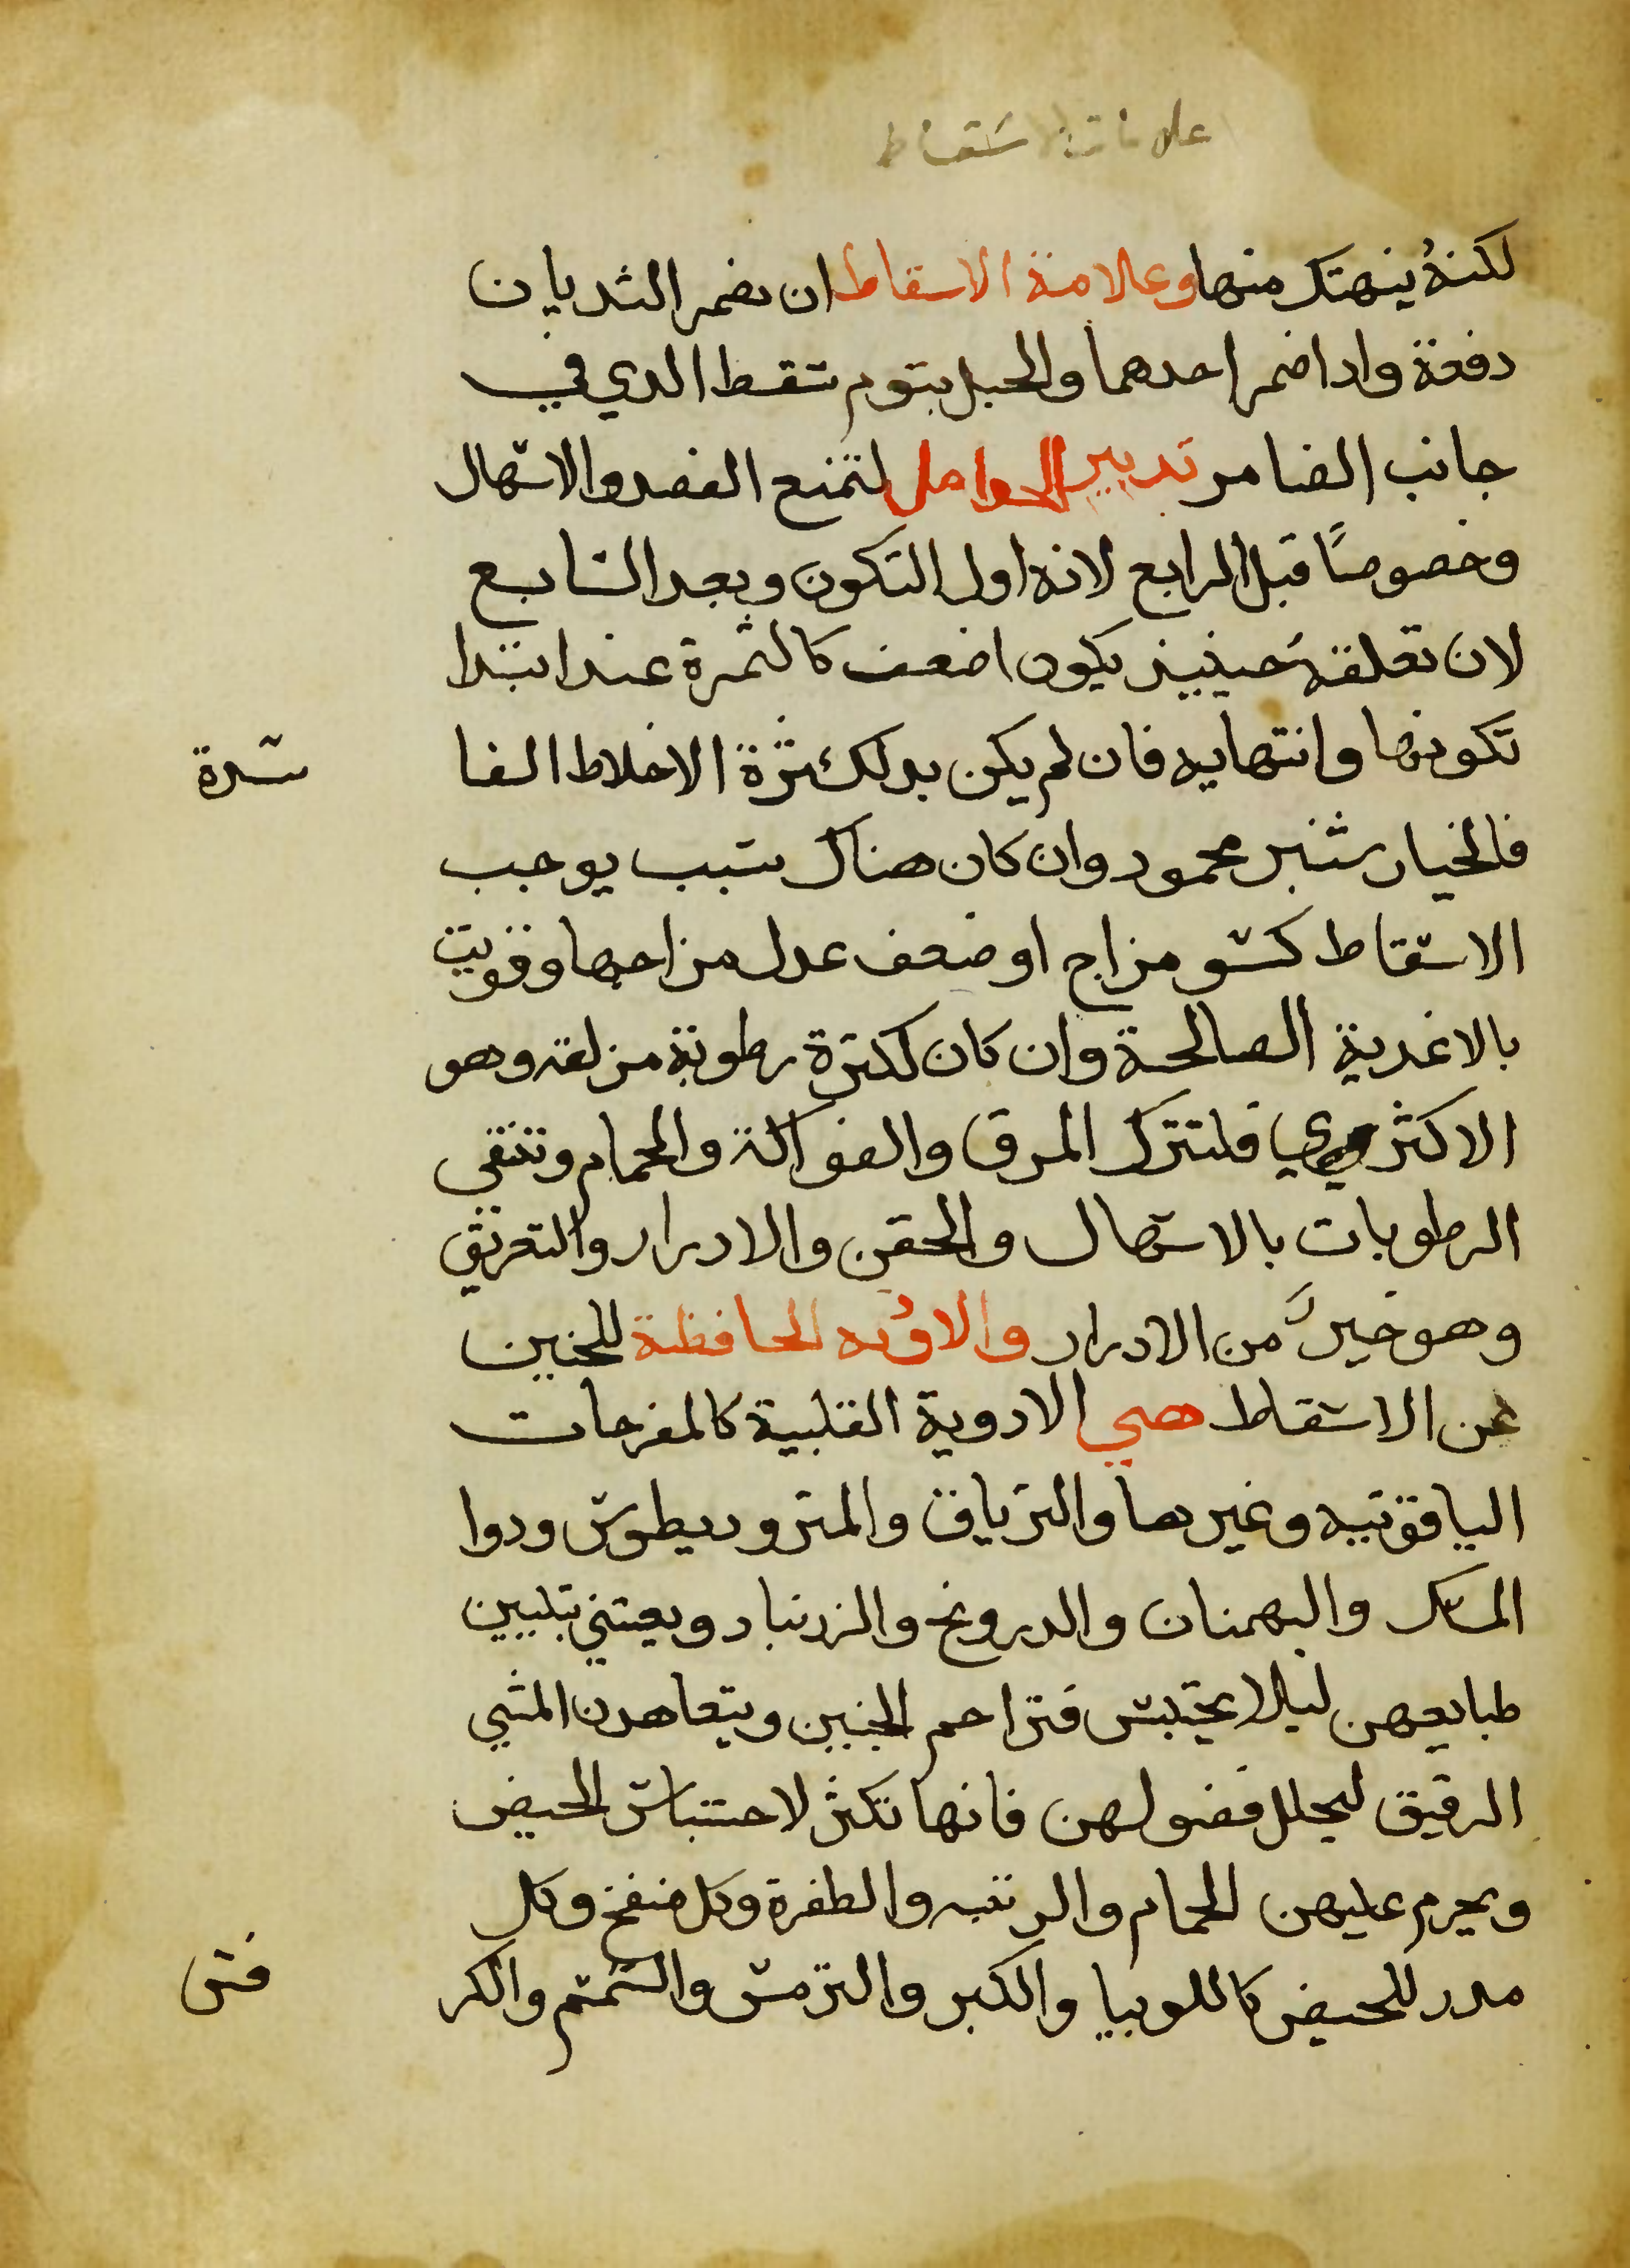 علامات الاسقاط
لكنهُ ينهتك منها وعلامة الاسقاط ان يضمر الثديان
دفعة وادا ضمر احدهما والحبل بتوم سقط الدي في
جانب الضامر تدبير الحوامل لتمنع الفصد والاسهال
وخصوصًا قبل الرابع لانه اول التكون وبعد السابع
لان تعلقه حينيذ يكون اضعف كالثمرة عند ابتدا
تكونها وانتهايه فان لم يكن بد لكثرة الاخلاط الفا
سدة
فالخيار شنبر محمود وان كان هناك سبب يوجب
الاسقاط كسو مزاج او ضعف عدل مزاجها وقويت
بالاغدية الصالحة وان كان لكثرة رطوبة مزلقه وهو
الاكثري فلتترك المرق والفواكة والحمام وتنقى
الرطوبات بالاسهال والحقن والادرار والتعريق
وهو خير من الادرار والادويه الحافظة للجنين
عن الاسقاط هي الادوية القلبية كالمفرحات
الياقوتيه وغيرها والترياق والمترو ديطوس ودوا
المسك والبهمنان والدرونج والزرنباد ويعتني بتليين
طبايعهن ليلا يحتبس فتزاحم الجنين ويتعاهدن المشي
الرقيق ليحلل فضولهن فانها تكثر لاحتباس الحيض
ويحرم عليهن الحمام والوثبه والطفرة وكل منفخ وكل
مدر للحيض كاللوبيا والكبر والترمس والسمسم والكر
فس